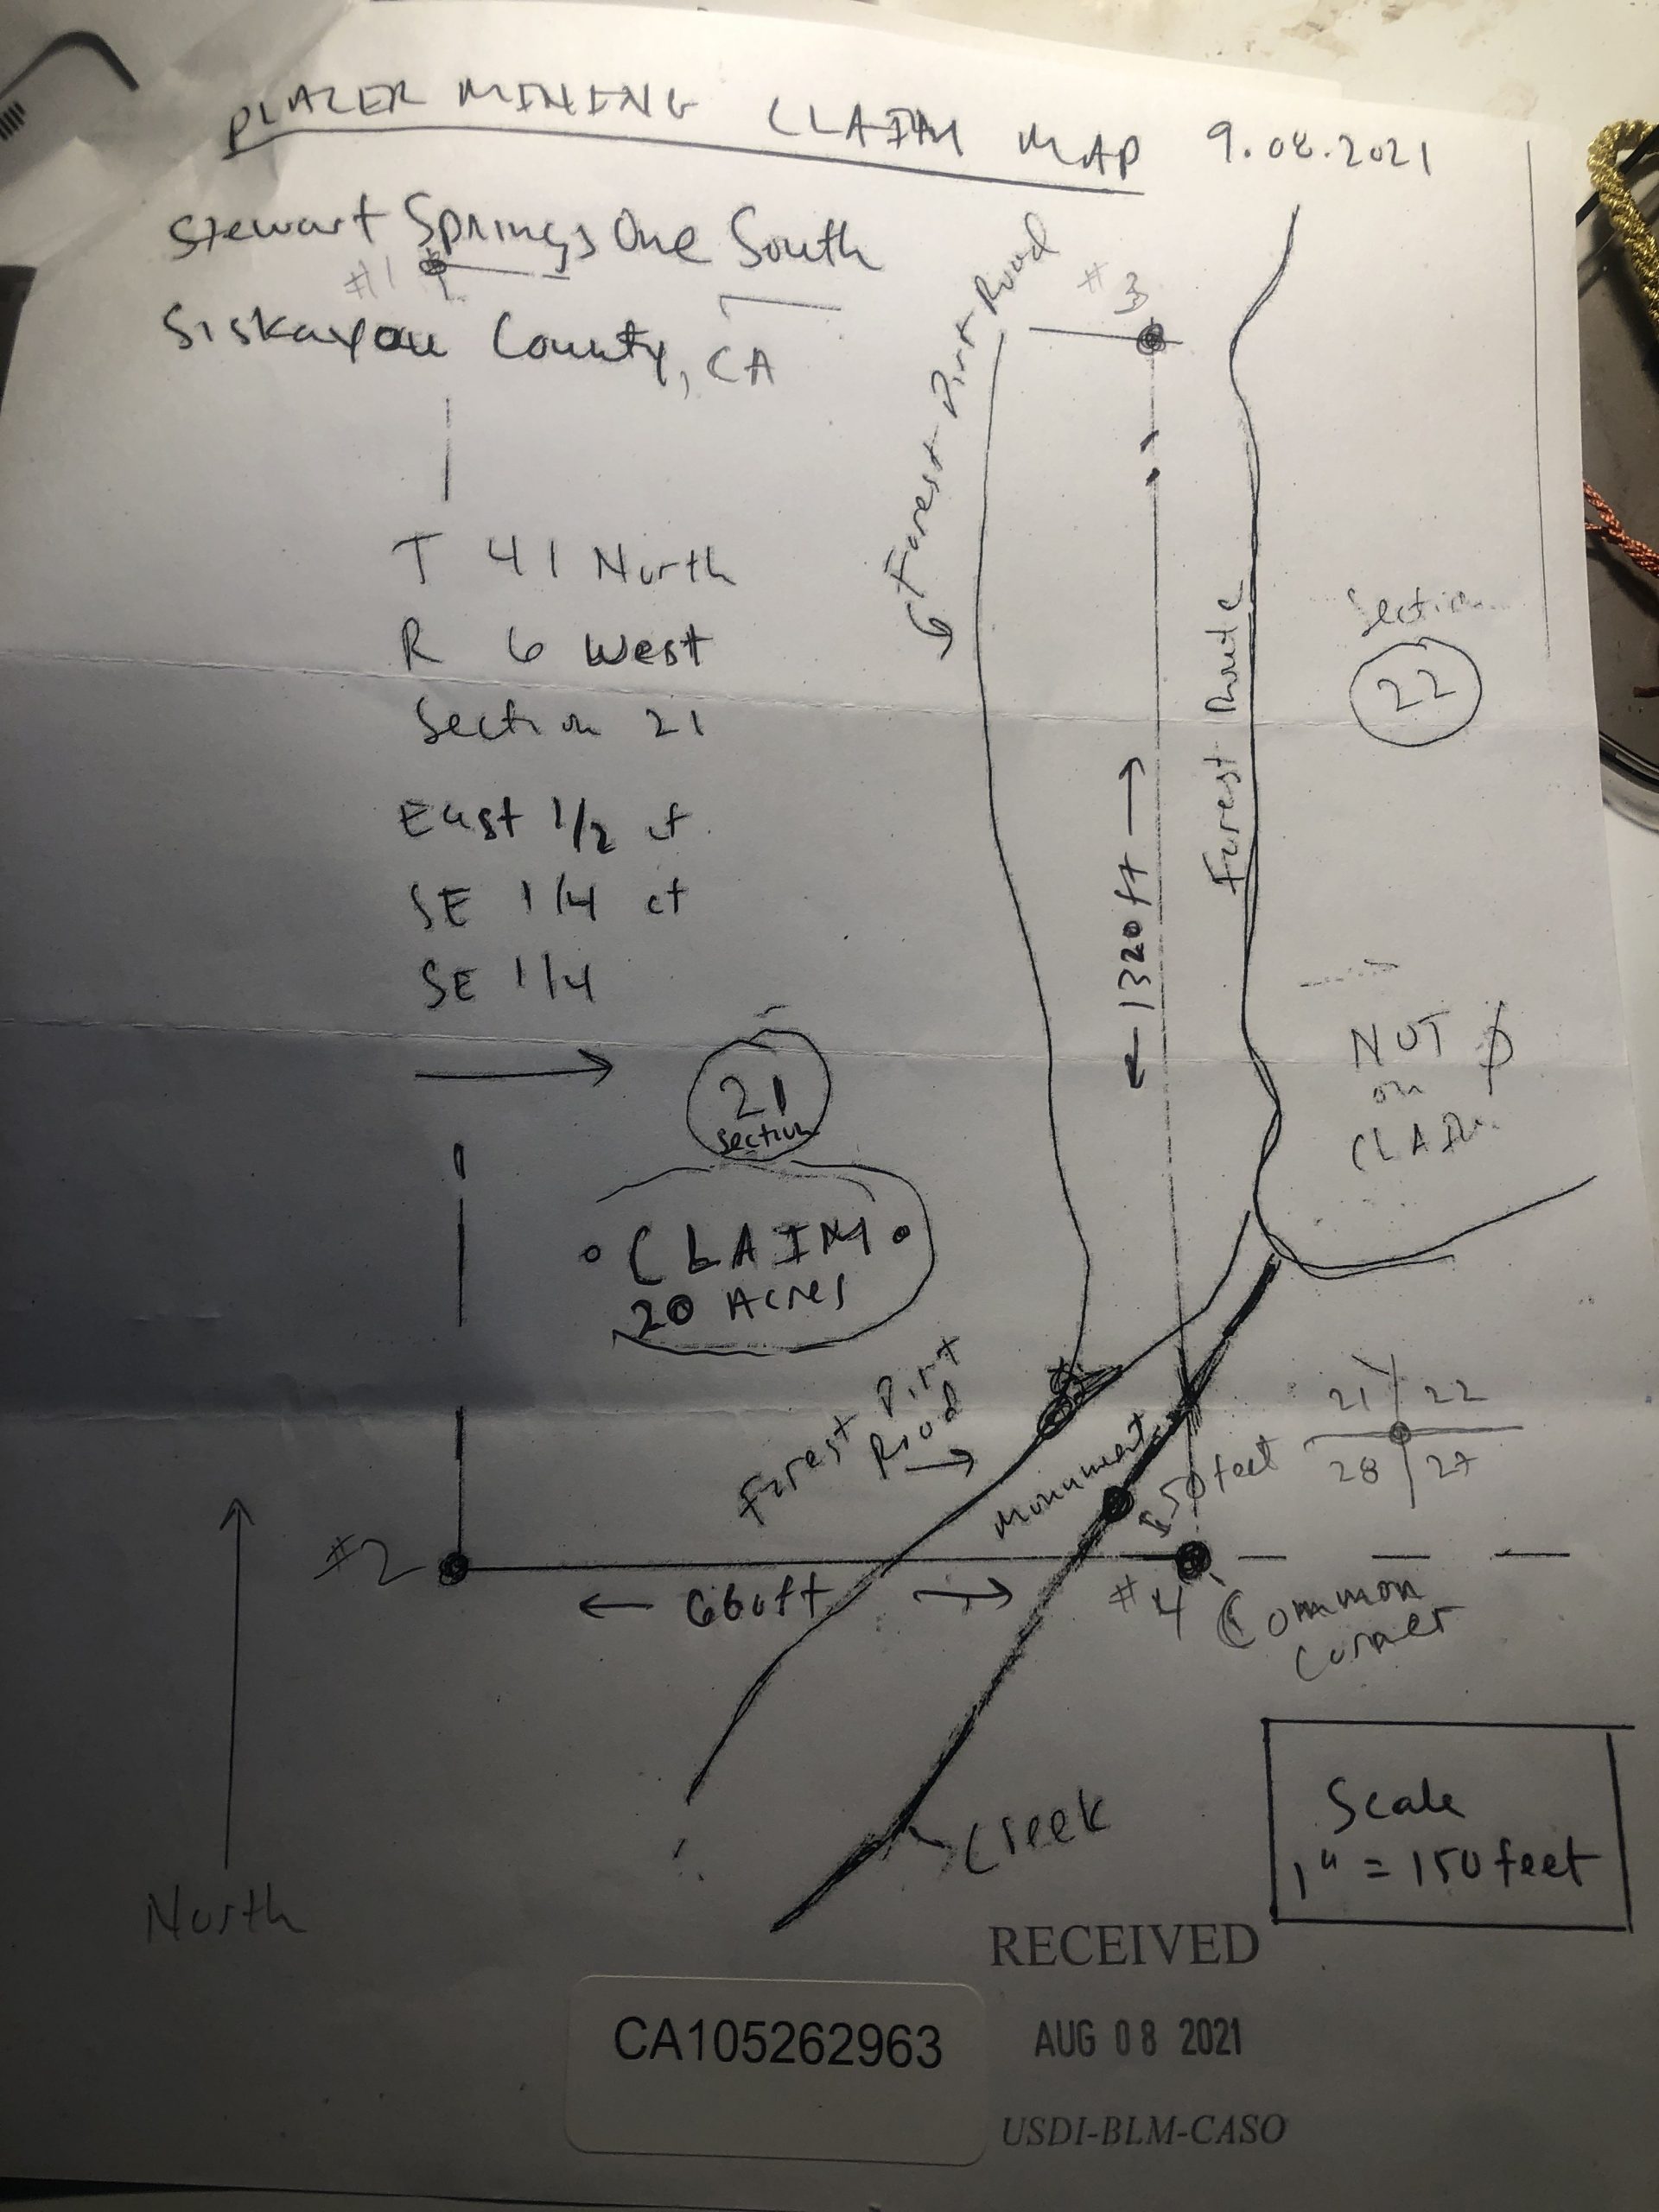 PLACER MINING CLAIM MAP 9.08.2021
Stewart Springs One South
#1
Siskayou County, CA
Forest Dirt Road
#3
T 41 North
R 6 West
Section 21
East 1/2 of
SE 1/4 of
SE 1/4
Forest Route
Section
22
← 1320 ft →
21
Section
NOT
on
CLAIM
CLAIM
20 Acres
Forest Dirt
Road
Monument
150 feet
21 22
28 27
#2
← 660 ft →
#4
Common
Corner
North
Creek
Scale
1" = 150 feet
RECEIVED
CA105262963
AUG 08 2021
USDI-BLM-CASO